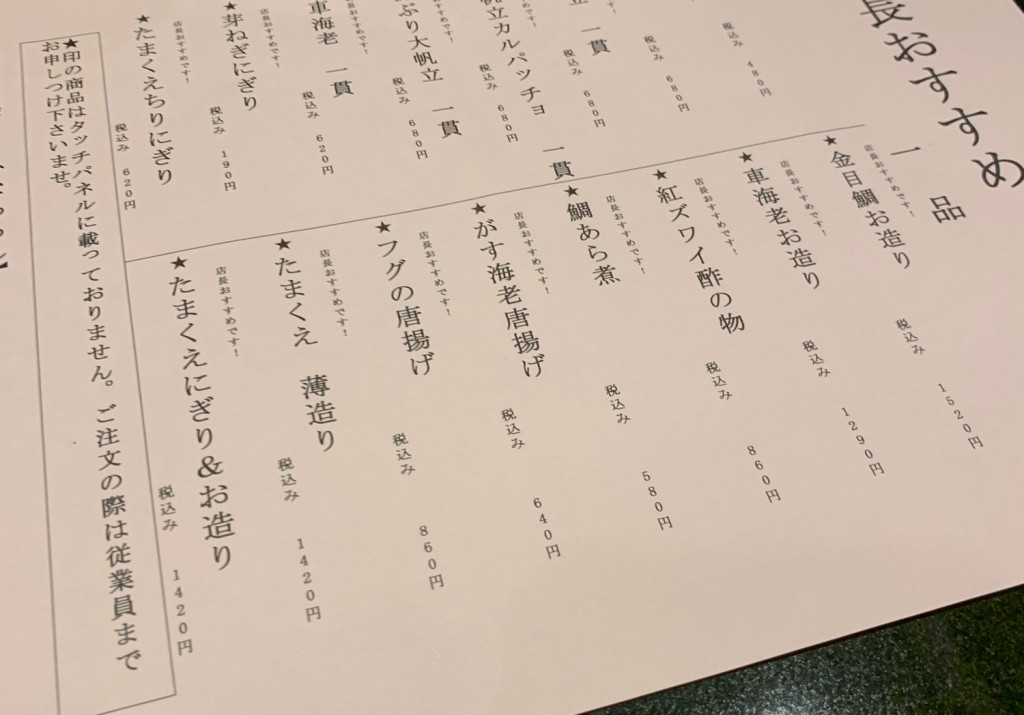 長おすすめ
一品
税込み 480円
税込み 680円
一貫
税込み 680円
帆立カルパッチョ 一貫
税込み 680円
ぷり大帆立 一貫
税込み 680円
車海老 一貫
税込み 620円
店長おすすめです!
★芽ねぎにぎり
税込み 190円
店長おすすめです!
★たまくえちりにぎり
税込み 620円
店長おすすめです!
★金目鯛お造り
税込み 1520円
店長おすすめです!
★車海老お造り
税込み 1290円
店長おすすめです!
★紅ズワイ酢の物
税込み 860円
店長おすすめです!
★鯛あら煮
税込み 580円
店長おすすめです!
★がす海老唐揚げ
税込み 640円
店長おすすめです!
★フグの唐揚げ
税込み 860円
店長おすすめです!
★たまくえ 薄造り
税込み 1420円
店長おすすめです!
★たまくえにぎり&お造り
税込み 1420円
★印の商品はタッチパネルに載っておりません。ご注文の際は従業員まで
お申しつけ下さいませ。